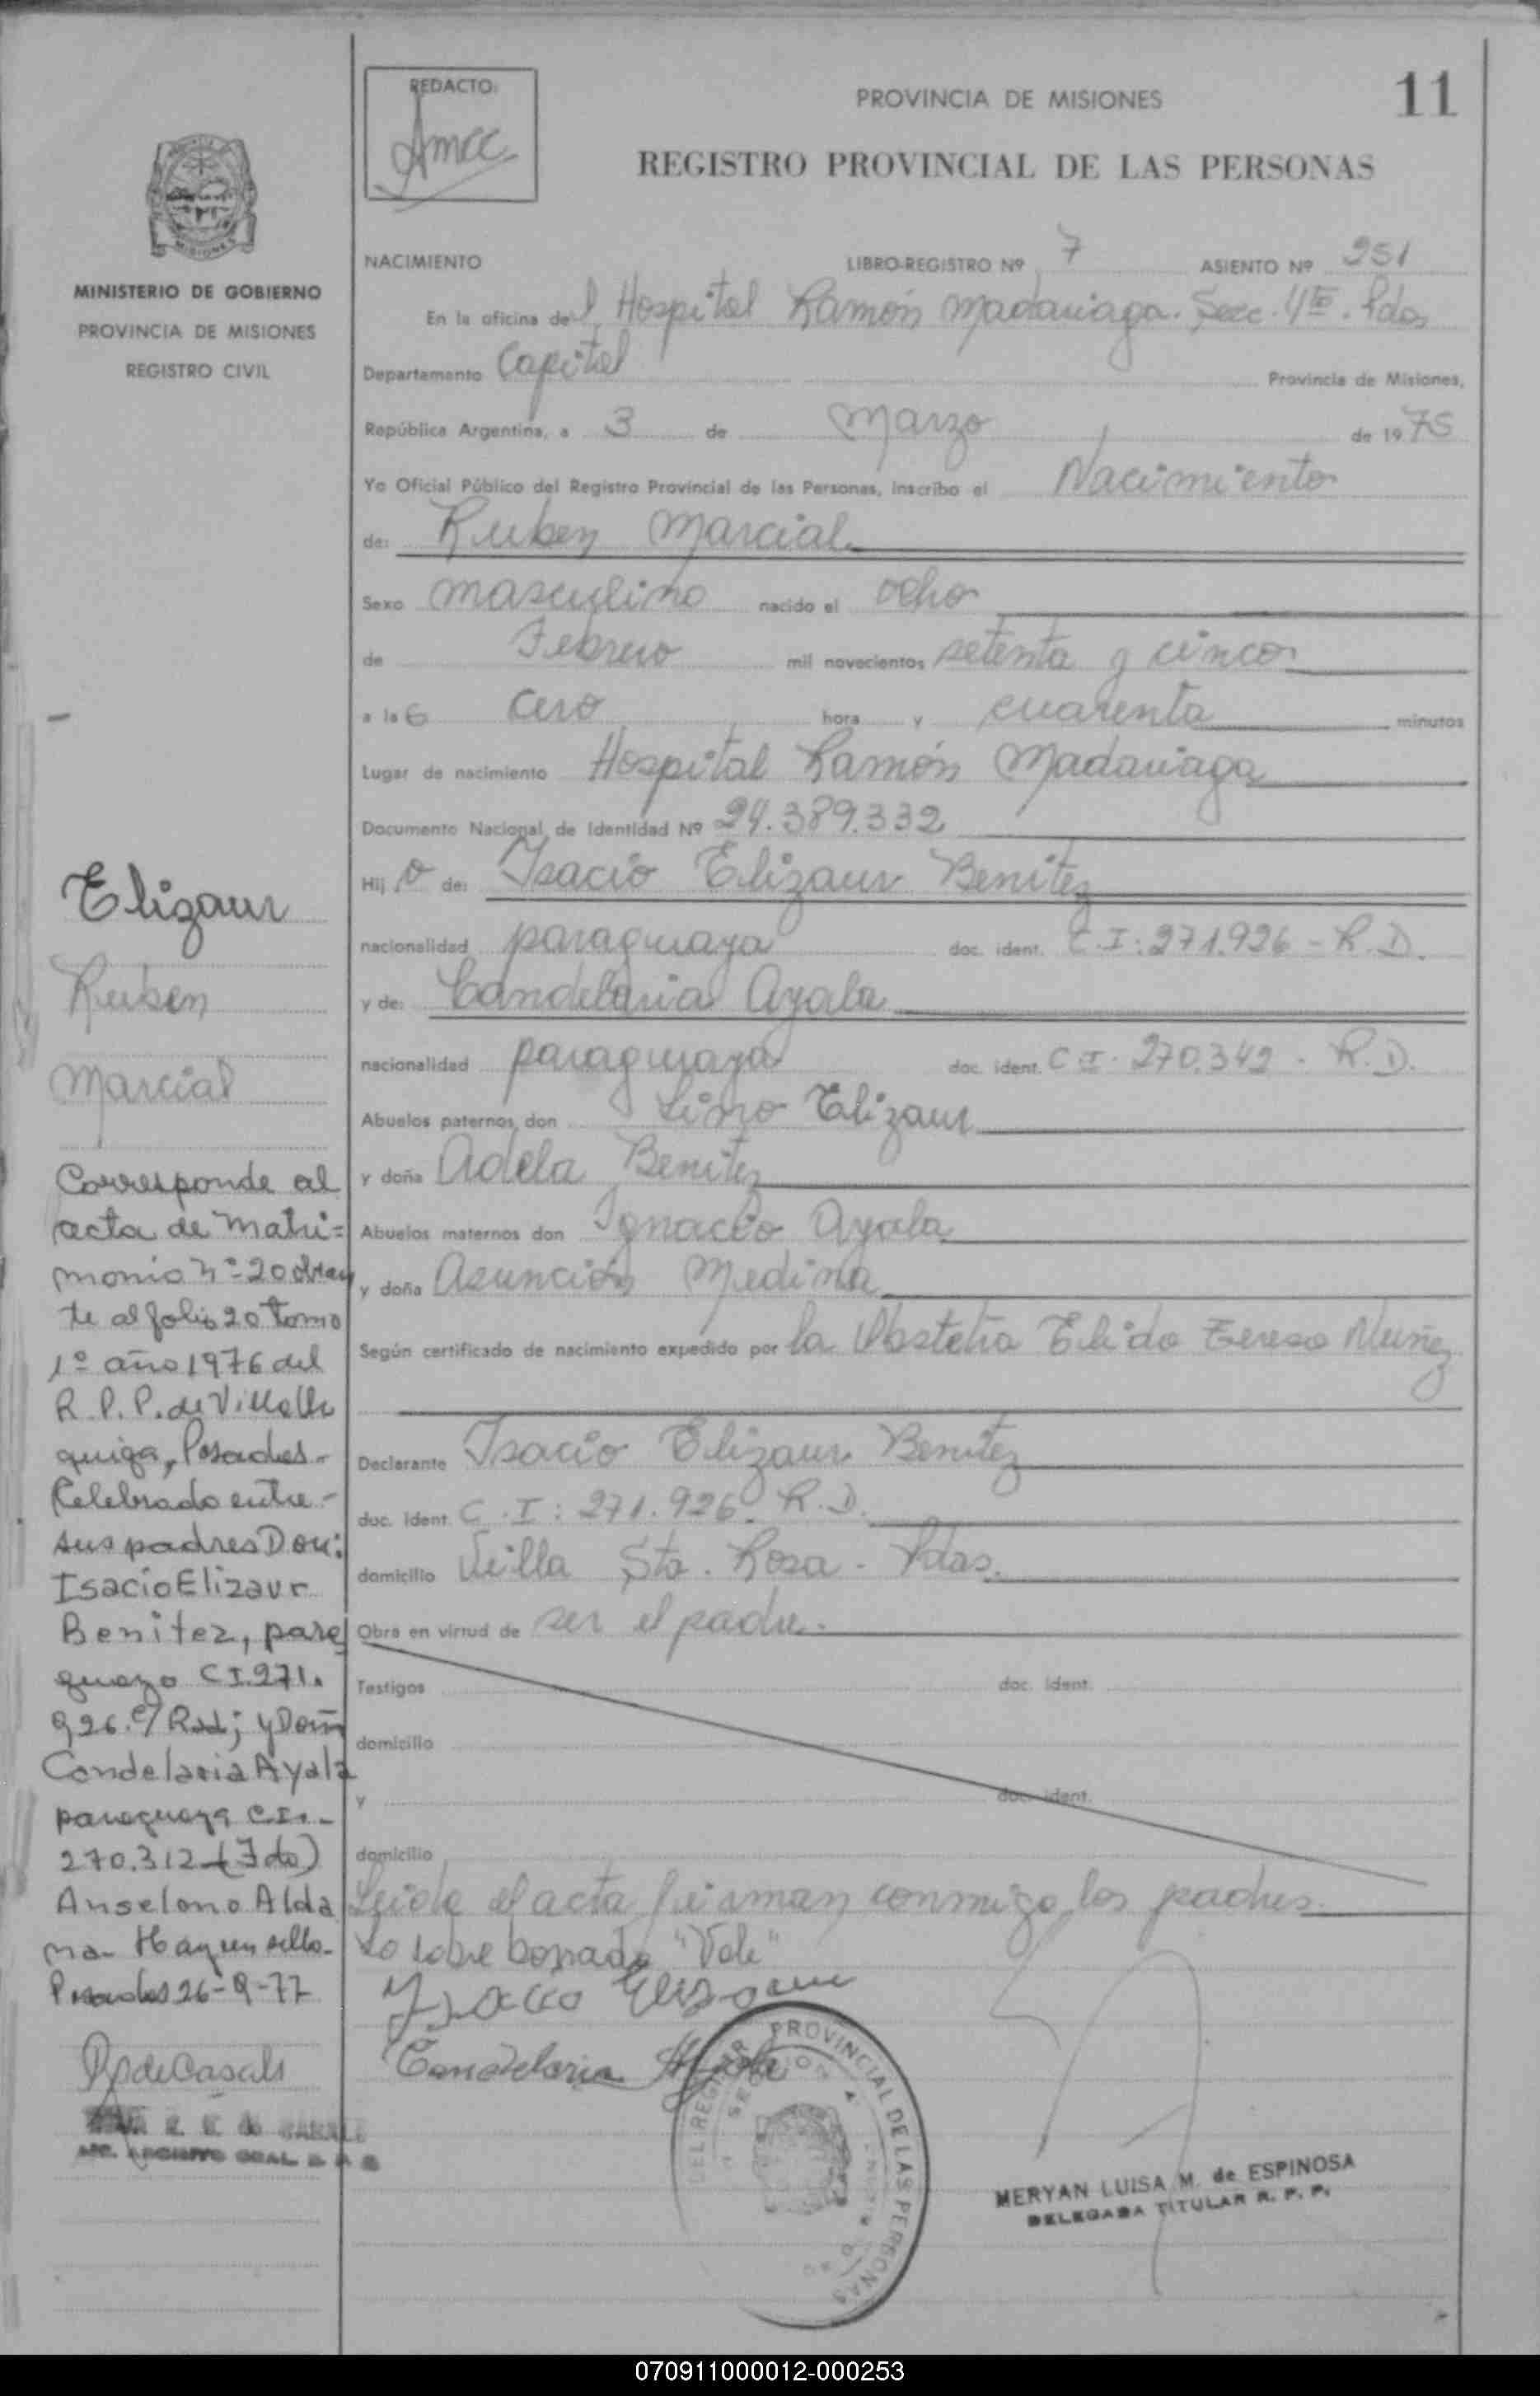 REDACTO:
Amcc
PROVINCIA DE MISIONES
11
REGISTRO PROVINCIAL DE LAS PERSONAS
MISIONES
MINISTERIO DE GOBIERNO
PROVINCIA DE MISIONES
REGISTRO CIVIL
NACIMIENTO LIBRO-REGISTRO Nº 7 ASIENTO Nº 251
En la oficina del Hospital Ramón Madariaga. Secc. 4ta. Pdas
Departamento Capital Provincia de Misiones,
República Argentina, a 3 de Marzo de 1975
Yo Oficial Público del Registro Provincial de las Personas, inscribo el Nacimiento
de: Ruben Marcial
Sexo masculino nacido el ocho
de Febrero mil novecientos setenta y cinco
a la s cero hora y cuarenta minutos
Lugar de nacimiento Hospital Ramón Madariaga
Documento Nacional de Identidad Nº 24.389.332
Hij o de: Isacio Elizaur Benitez
nacionalidad paraguaya doc. ident. C.I: 271.926 - R.D.
y de: Candelaria Ayala
nacionalidad paraguaya doc. ident. C.I. 270.342 - R.D.
Abuelos paternos don Lino Elizaur
y doña Adela Benitez
Abuelos maternos don Ignacio Ayala
y doña Asunción Medina
Según certificado de nacimiento expedido por la Obstetra Elida Teresa Nuñez
Declarante Isacio Elizaur Benitez
doc. ident. C.I: 271.926. R.D.
domicilio Villa Sta. Rosa - Pdas.
Obra en virtud de ser el padre.
Testigos doc. ident.
domicilio
y doc. ident.
domicilio
Leida el acta firman conmigo los padres.
Lo sobre borrado "Vale"
Isacio Elizaur
Candelaria Ayala
Elizaur
Ruben
Marcial
Corresponde al
acta de Matri=
monio Nº 20 obran
te al folio 20 tomo
1º año 1976 del
R.P.P. de Villa Ur
quiza, Posadas-
Celebrado entre-
sus padres Don:
Isacio Elizaur
Benitez, para
guayo C.I. 271.
926. c/ Rad; y Doña
Candelaria Ayala
paraguaya C.I.-
270.312 - (Fdo)
Anselmo Alda
na- Hay un sello-
Posadas 26-9-77
R. de Casals
DEL REGISTRO PROVINCIAL DE LAS PERSONAS
SECCION 4
MERYAN LUISA M. de ESPINOSA
DELEGADA TITULAR R. P. P.
070911000012-000253